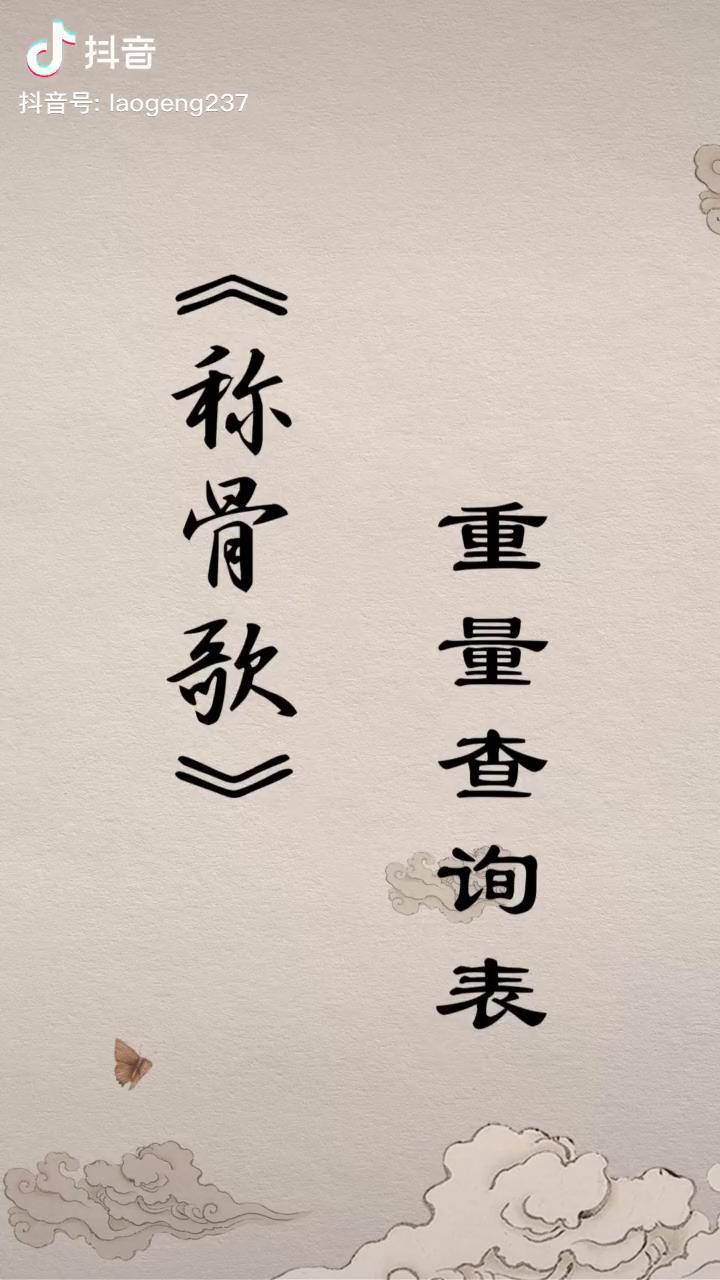 抖音
抖音号: laogeng237
《称骨歌》
重量查询表